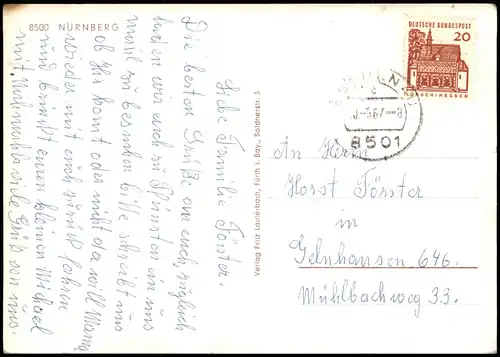 8500 NÜRNBERG
Liebe Familie Förster.
Die besten Grüße an euch, zugleich
laden wir euch zu Pfingsten ein uns
mal zu besuchen bitte schreibt uns
ob ihr kommt oder nicht da will Mama
wieder mit euch zurück fahren
und bringt einen kleinen Michael
mit. Noch mal viele Grüße von uns.
Verlag Fritz Lauterbach, Fürth i. Bay., Soldnerstr. 5
DEUTSCHE BUNDESPOST
20
LORSCH/HESSEN
8501
An Herrn
Horst Förster
in
Gelnhausen 646.
Mühlbachweg 33.